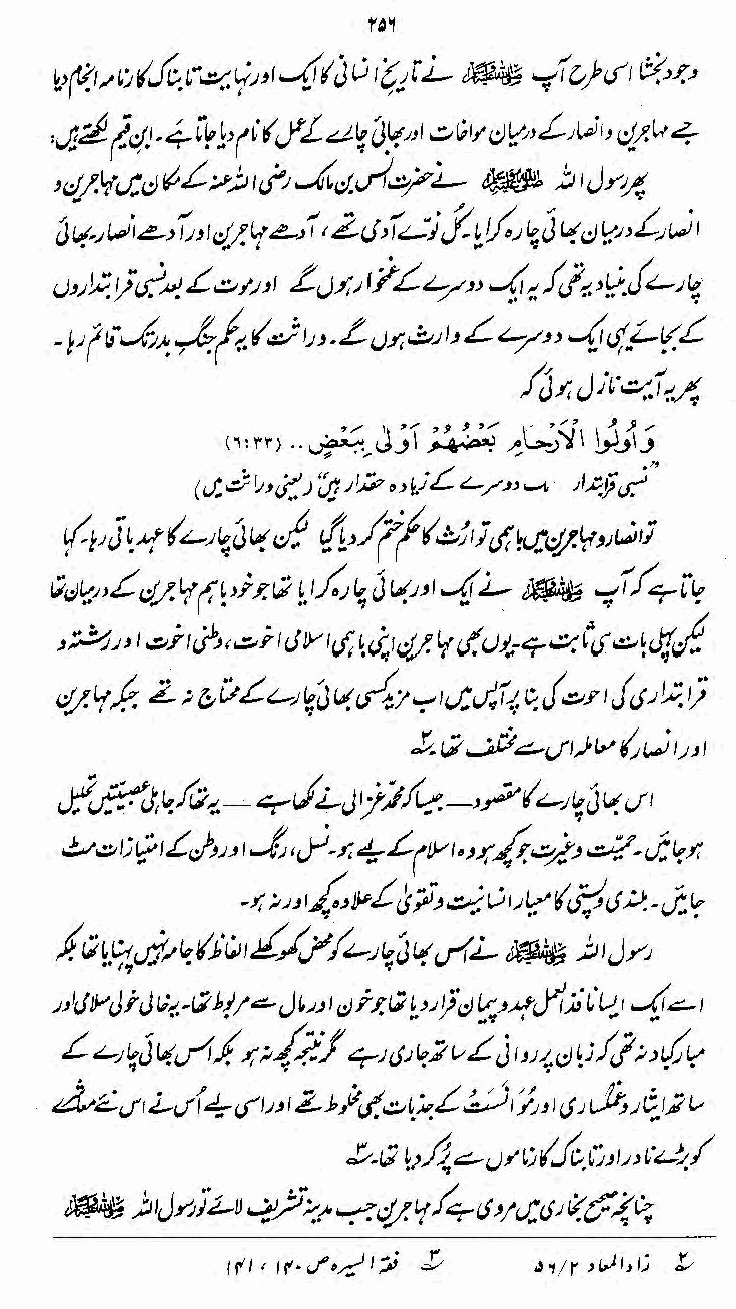 ۲۵۶
وجود بخشا اسی طرح آپ ﷺ نے تاریخِ انسانی کا ایک اور نہایت تابناک کارنامہ انجام دیا
جسے مہاجرین و انصار کے درمیان مواخات اور بھائی چارے کے عمل کا نام دیا جاتا ہے۔ ابنِ قیم لکھتے ہیں:
پھر رسول اللہ ﷺ نے حضرت انس بن مالک رضی اللہ عنہ کے مکان میں مہاجرین و
انصار کے درمیان بھائی چارہ کرایا۔ کُل نوّے آدمی تھے، آدھے مہاجرین اور آدھے انصار۔ بھائی
چارے کی بنیاد یہ تھی کہ یہ ایک دوسرے کے غمخوار ہوں گے اور موت کے بعد نسبی قرابتداروں
کے بجائے یہی ایک دوسرے کے وارث ہوں گے۔ وراثت کا یہ حکم جنگِ بدر تک قائم رہا۔
پھر یہ آیت نازل ہوئی کہ
وَاُولُوا الْاَرْحَامِ بَعْضُهُمْ اَوْلٰى بِبَعْضٍ .. (۶:۳۳)
"نسبی قرابتدار دوسرے کے زیادہ حقدار ہیں" (یعنی وراثت میں)
تو انصار و مہاجرین میں باہمی توارُث کا حکم ختم کر دیا گیا لیکن بھائی چارے کا عہد باقی رہا۔ کہا
جاتا ہے کہ آپ ﷺ نے ایک اور بھائی چارہ کرایا تھا جو خود باہم مہاجرین کے درمیان تھا
لیکن پہلی بات ہی ثابت ہے۔ یوں بھی مہاجرین اپنی باہمی اسلامی اخوت، وطنی اخوت اور رشتہ و
قرابتداری کی اخوت کی بنا پر آپس میں اب مزید کسی بھائی چارے کے محتاج نہ تھے جبکہ مہاجرین
اور انصار کا معاملہ اس سے مختلف تھا۔ ۲؎
اس بھائی چارے کا مقصود — جیسا کہ محمد غزالی نے لکھا ہے — یہ تھا کہ جاہلی عصبیتیں تحلیل
ہو جائیں۔ حمیّت و غیرت جو کچھ ہو وہ اسلام کے لیے ہو۔ نسل، رنگ اور وطن کے امتیازات مٹ
جائیں۔ بلندی و پستی کا معیار انسانیت و تقویٰ کے علاوہ کچھ اور نہ ہو۔
رسول اللہ ﷺ نے اس بھائی چارے کو محض کھوکھلے الفاظ کا جامہ نہیں پہنایا تھا بلکہ
اسے ایک ایسا نافذ العمل عہد و پیمان قرار دیا تھا جو خون اور مال سے مربوط تھا۔ یہ خالی خولی سلامی اور
مبارکباد نہ تھی کہ زبان پر روانی کے ساتھ جاری رہے مگر نتیجہ کچھ نہ ہو بلکہ اس بھائی چارے کے
ساتھ ایثار و غمگساری اور مُوَانَسَتْ کے جذبات بھی مخلوط تھے اور اسی لیے اُس نے اس نئے معاشرے
کو بڑے نادر اور تابناک کارناموں سے پُر کر دیا تھا۔ ۳؎
چنانچہ صحیح بخاری میں مروی ہے کہ مہاجرین جب مدینہ تشریف لائے تو رسول اللہ ﷺ
۲؎ زاد المعاد ۵۶/۲ ۳؎ فقہ السیرہ ص ۱۴۰، ۱۴۱